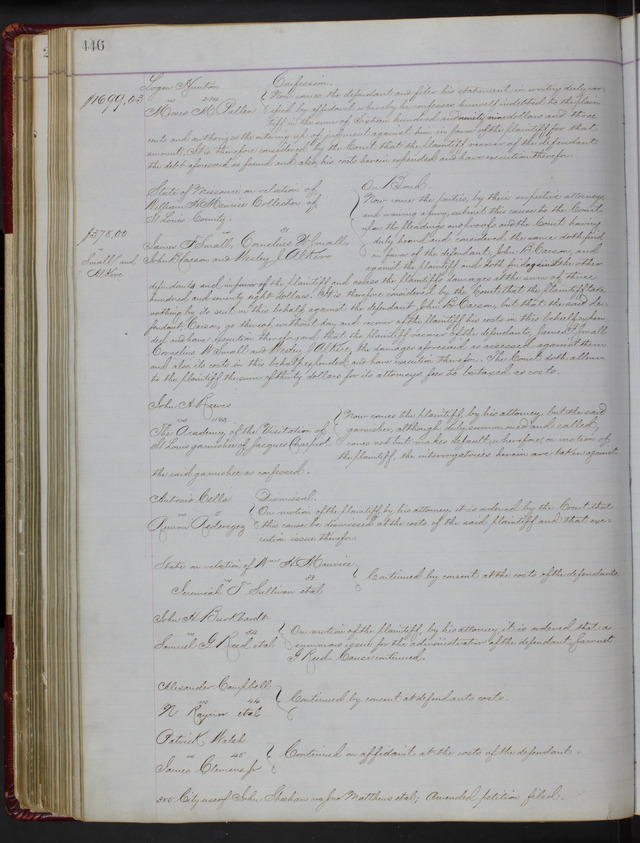 446
Logan Hunton Confession.
$1699,03 vs 2194 Now comes the defendant and files his statement in writing duly ver-
Moses M. Pallen ified by affidavit whereby he confesses himself indebted to the plain
tiff in the sum of Sixteen hundred and ninety nine dollars and three
cents and authorizes the entering up of judgment against him in favor of the plaintiff for that
amount. It is therefore considered by the Court that the plaintiff recover of the defendant
the debt aforesaid as found and also his costs herein expended and have execution therefor.
State of Missouri on relation of On Bond.
William H Maurice Collector of Now come the parties, by their respective attorneys,
St Louis County. and waiving a jury, submit this cause to the Court
$378,00 vs 31 upon the pleadings and proofs and the Court having
James F Small, Cornelius W Small duly heard and considered the same doth find
vs Small and Alkire John B Carson and Wesley J Alkire in favor of the defendant John B Carson, and
against the plaintiff and doth find against the other
defendants and in favor of the plaintiff and assess the plaintiffs damages at the sum of three
hundred and seventy eight dollars. It is therefore considered by the Court that the plaintiff take
nothing by its suit in this behalf against the defendant John B Carson, but that the said de-
fendant Carson, go thereof without day and recover of the plaintiff his costs in this behalf expen
ded and have execution therefor, and that the plaintiff recover of the defendants, James F Small
Cornelius W Small and Wesley J Alkire, the damages aforesaid as assessed against them
and also its costs in this behalf expended and have execution therefor. The Court doth allow
to the plaintiff the sum of thirty dollars for its attorneys fees to be taxed as costs.
John A Reeves
vs Now comes the plaintiff, by his attorney, but the said
The Academy of the Visitation of garnishee, although duly summoned and called,
St Louis garnishee of Jacques comes not but makes default; wherefore, on motion of
the plaintiff, the interrogatories herein are taken against
the said garnishee as confessed.
Antonio Cella Dismissal.
vs On motion of the plaintiff by his attorney it is ordered by the Court that
Ramon Rederigez this cause be dismissed at the costs of the said plaintiff and that exe-
cution issue therefor.
State on relation of Wm H Maurice
vs 39 Continued by consent at the costs of the defendants.
Jeremiah T Sullivan etal
John H Burkhardt
vs On motion of the plaintiff, by his attorney, it is ordered that a
Samuel G Reed etal summons issue for the administrator of the defendant
G Reed. Cause continued.
Alexander Campbell
vs 44 Continued by consent at defendants costs.
N Raynor etal
Patrick Walsh
vs 45 Continued on affidavit at the costs of the defendant.
James Clemens Jr
City use of John Sheehan vs Matthews etal; Amended petition filed.